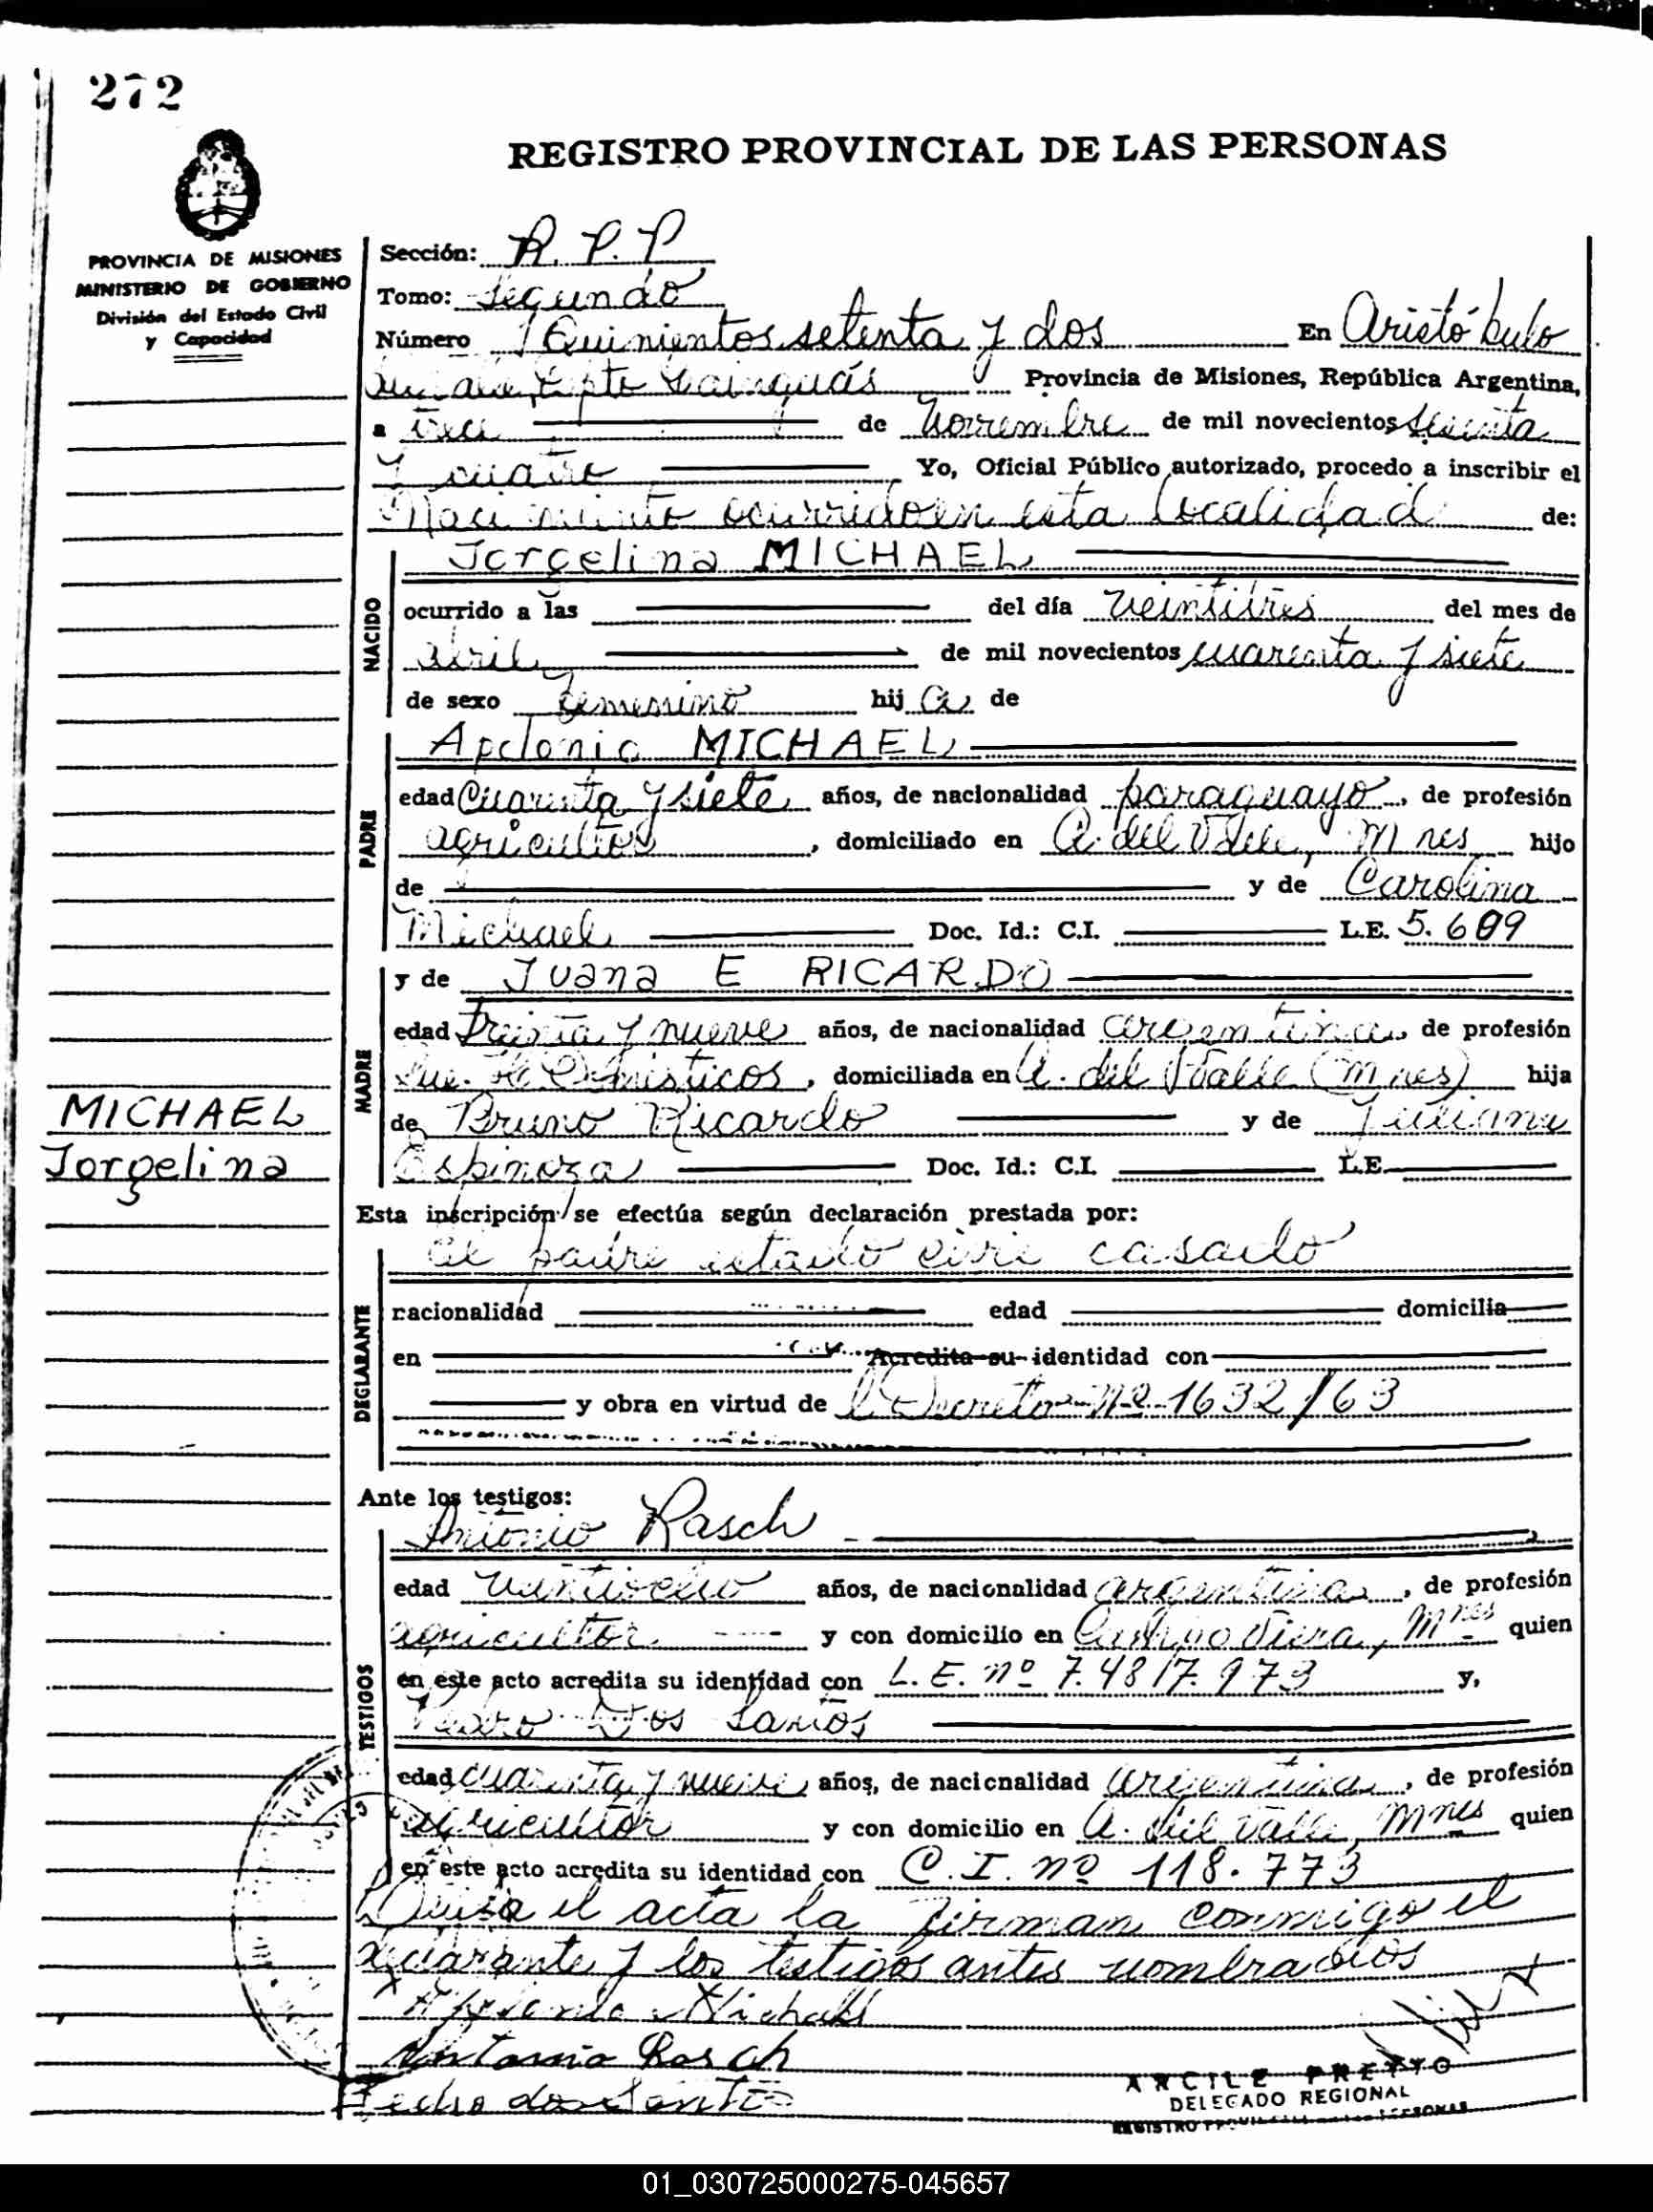 272
REGISTRO PROVINCIAL DE LAS PERSONAS
PROVINCIA DE MISIONES
MINISTERIO DE GOBIERNO
División del Estado Civil
y Capacidad
Sección: R. P. P
Tomo: Segundo
Número Quinientos setenta y dos En Aristóbulo
Dpto Cainguás Provincia de Misiones, República Argentina,
a trece de Noviembre de mil novecientos sesenta
y cuatro Yo, Oficial Público autorizado, procedo a inscribir el
Nacimiento ocurrido en esta localidad de:
Jorgelina MICHAEL
NACIDO
ocurrido a las del día veintitres del mes de
abril de mil novecientos cuarenta y siete
de sexo femenino hij a de
Apolonio MICHAEL
PADRE
edad cuarenta y siete años, de nacionalidad paraguayo, de profesión
agricultor, domiciliado en A. del Valle, Mnes hijo
de y de Carolina
Michael Doc. Id.: C.I. L.E. 5.609
y de Juana E RICARDO
MADRE
edad treinta y nueve años, de nacionalidad argentina, de profesión
Domésticos, domiciliada en A. del Valle (Mnes) hija
de Bruno Ricardo y de Juliana
Espinoza Doc. Id.: C.I. L.E.
MICHAEL
Jorgelina
Esta inscripción se efectúa según declaración prestada por:
el padre estado civil casado
DECLARANTE
nacionalidad edad domicilia
en Acredita su identidad con
y obra en virtud de l Decreto Nº 1632/63
Ante los testigos:
Antonio Rasch
TESTIGOS
edad veintiocho años, de nacionalidad argentina, de profesión
agricultor y con domicilio en Campo Viera, Mnes quien
en este acto acredita su identidad con L. E. nº 7.4817.973 y,
Pedro Dos Santos
edad cuarenta y nueve años, de nacionalidad argentina, de profesión
agricultor y con domicilio en A. del Valle, Mnes quien
en este acto acredita su identidad con C. I. nº 118.773
el acta la firman conmigo el
declarante y los testigos antes nombrados
Antonio Rasch
Pedro dos Santos
ARCILE PREYTO
DELEGADO REGIONAL
REGISTRO PROVINCIAL DE LAS PERSONAS
01_030725000275-045657